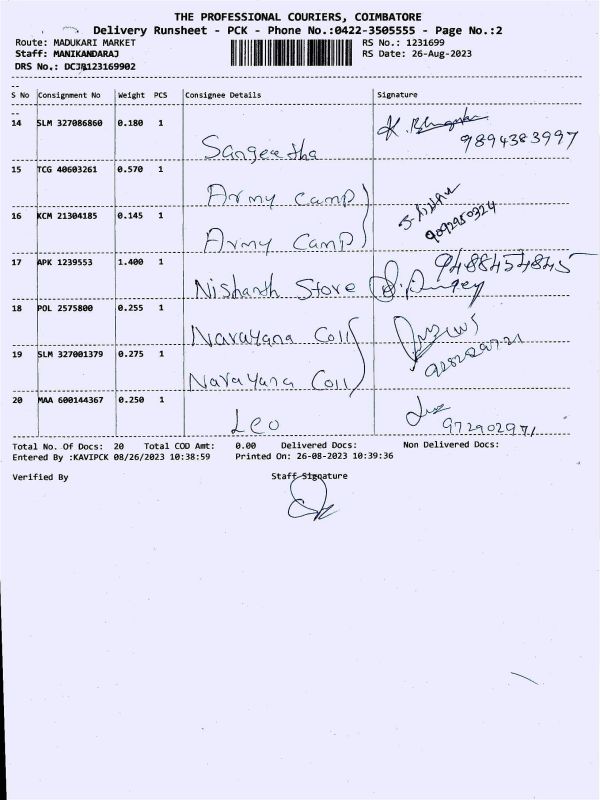 THE PROFESSIONAL COURIERS, COIMBATORE
Delivery Runsheet - PCK - Phone No.:0422-3505555 - Page No.:2
Route: MADUKARI MARKET RS No.: 1231699
Staff: MANIKANDARAJ RS Date: 26-Aug-2023
DRS No.: 123169902
S No Consignment No Weight PCS Consignee Details Signature
14 SLM 327086860 0.180 1
Sangeetha 9894383997
15 TCG 40603261 0.570 1
Army Camp
16 KCM 21304185 0.145 1 9092950324
Army Camp
17 APK 1239553 1.400 1 9488454845
Nishanth Store
18 POL 2575800 0.255 1
Narayana Coll
19 SLM 327001379 0.275 1
Narayana Coll
20 MAA 600144367 0.250 1
Leo 972902971
Total No. Of Docs: 20 Total COD Amt: 0.00 Delivered Docs: Non Delivered Docs:
Entered By :KAVIPCK 08/26/2023 10:38:59 Printed On: 26-08-2023 10:39:36
Verified By Staff Signature